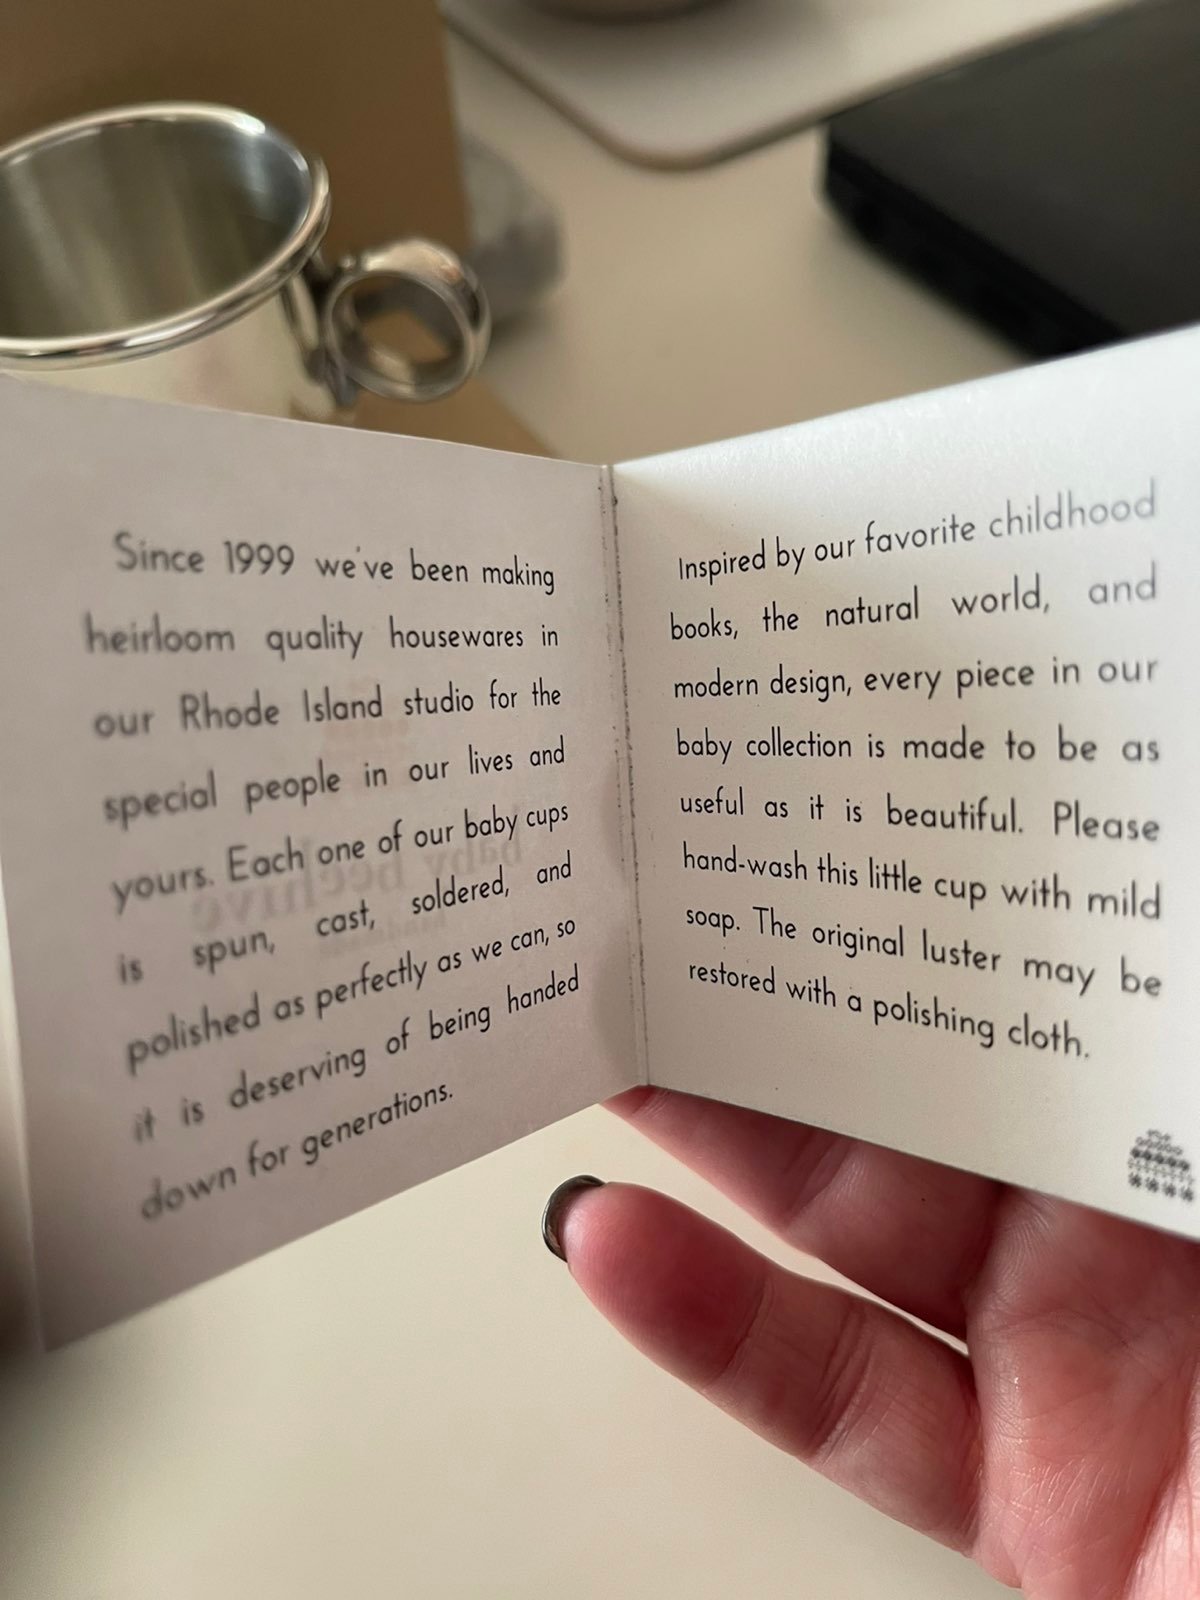 Since 1999 we've been making
heirloom quality housewares in
our Rhode Island studio for the
special people in our lives and
yours. Each one of our baby cups
is spun, cast, soldered, and
polished as perfectly as we can, so
it is deserving of being handed
down for generations.
Inspired by our favorite childhood
books, the natural world, and
modern design, every piece in our
baby collection is made to be as
useful as it is beautiful. Please
hand-wash this little cup with mild
soap. The original luster may be
restored with a polishing cloth.